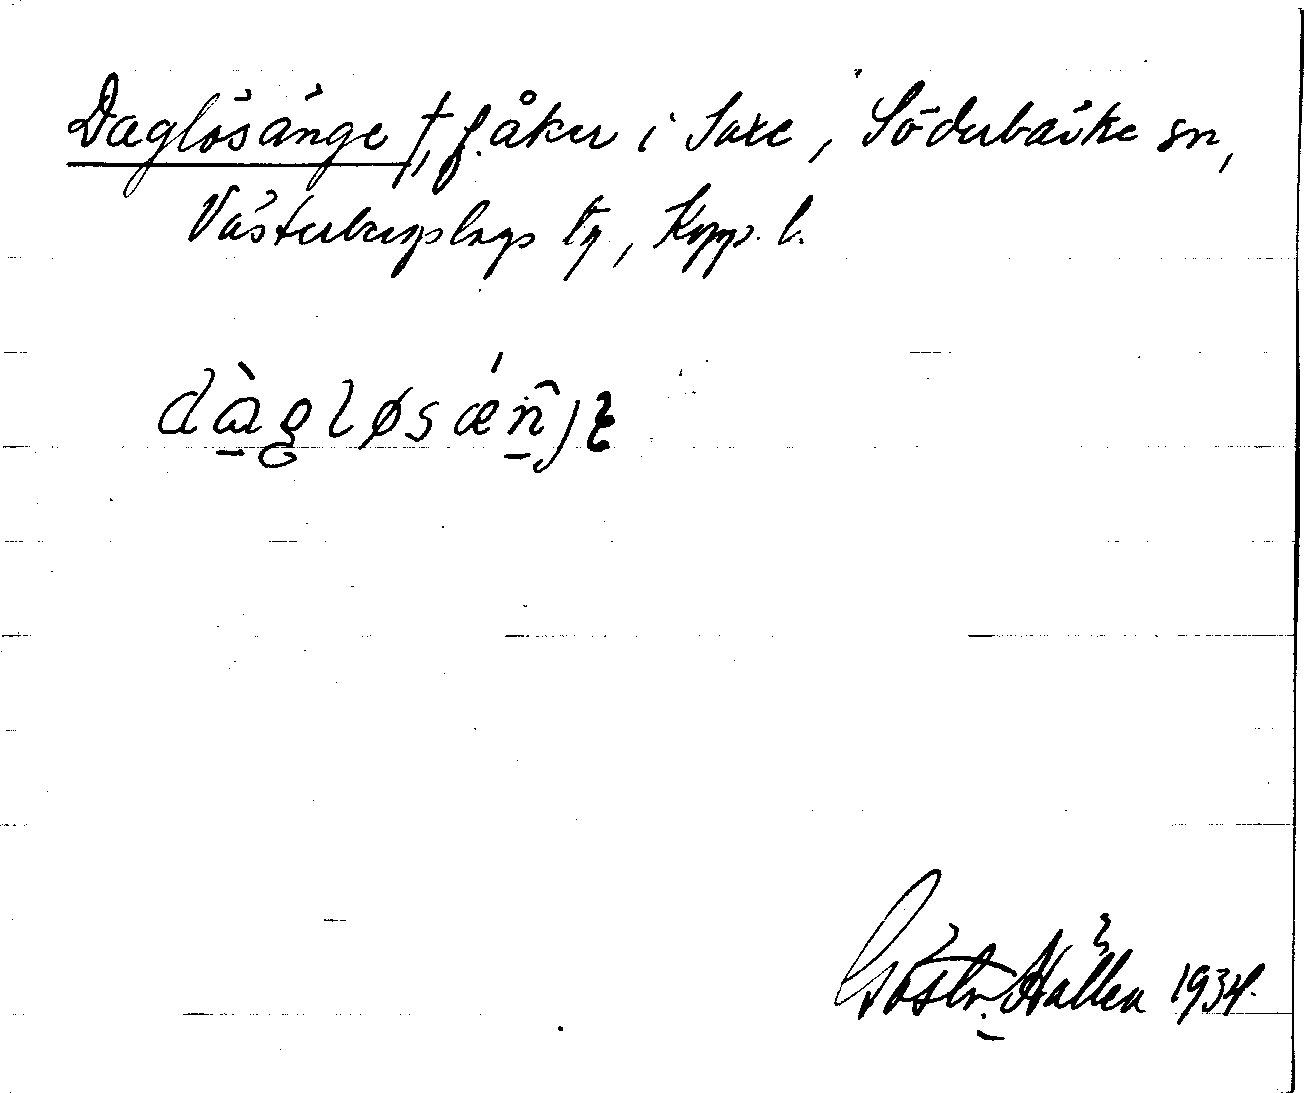 Daglösänge †, f. åker i Saxe, Söderbärke sn,
Västerbergslags tg, Kopp. l.
dàgløsǽn̂jε
Gösta Hallen 1934.